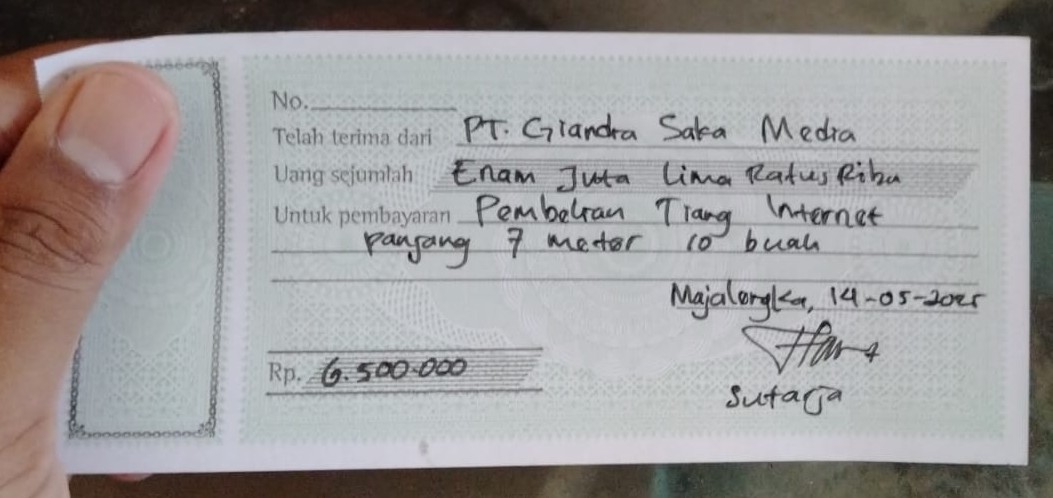 No.
Telah terima dari PT. Giandra Saka Media
Uang sejumlah Enam Juta Lima Ratus Ribu
Untuk pembayaran Pembelian Tiang Internet
panjang 7 meter 10 buah
Majalengka, 14-05-2025
Rp. 6.500.000
Sutarja